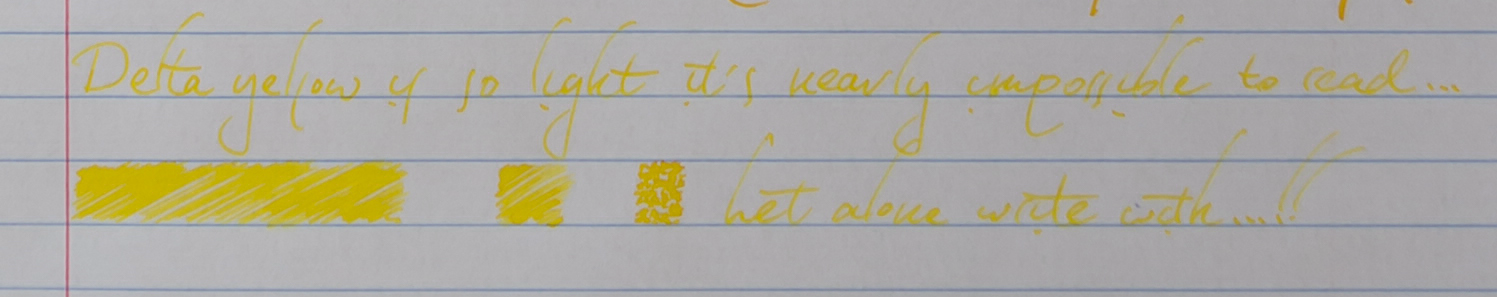 Delta yellow is so light it's nearly impossible to read...
Let alone write with....!!